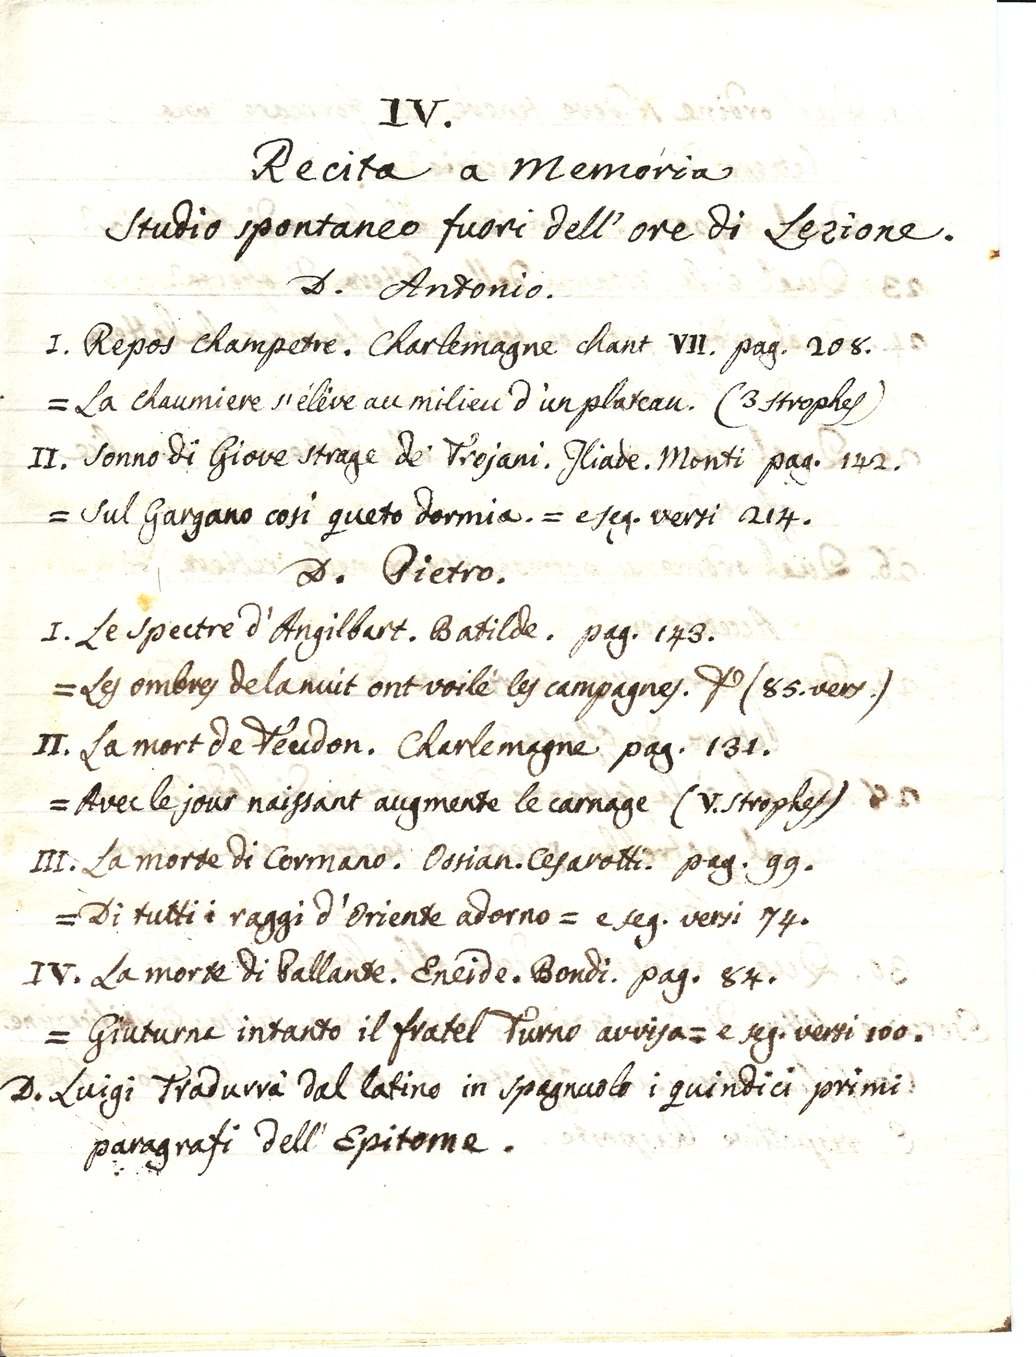 IV.
Recita a Memoria
Studio spontaneo fuori dell' ore di Lezione.
D. Antonio.
I. Repos Champetre. Charlemagne chant VII. pag. 208.
= La Chaumiere s'élève au milieu d'un plateau. (3 strophes)
II. Sonno di Giove strage de' Trojani. Iliade. Monti pag. 142.
= Sul Gargano così queto dormia. = e seg. versi 214.
D. Pietro.
I. Le Spectre d'Angilbart. Batilde. pag. 143.
= Les ombres de la nuit ont voilé les campagnes. (85. vers.)
II. La mort de Teudon. Charlemagne pag. 131.
= Avec le jour naissant augmente le carnage (V. strophes)
III. La morte di Cormano. Ossian. Cesarotti. pag. 99.
= Di tutti i raggi d'Oriente adorno = e seg. versi 74.
IV. La morte di Pallante. Eneide. Bondi. pag. 84.
= Giuturna intanto il fratel Turno avvisa = e seg. versi 100.
D. Luigi Tradurrà dal latino in spagnuolo i quindici primi
paragrafi dell' Epitome.